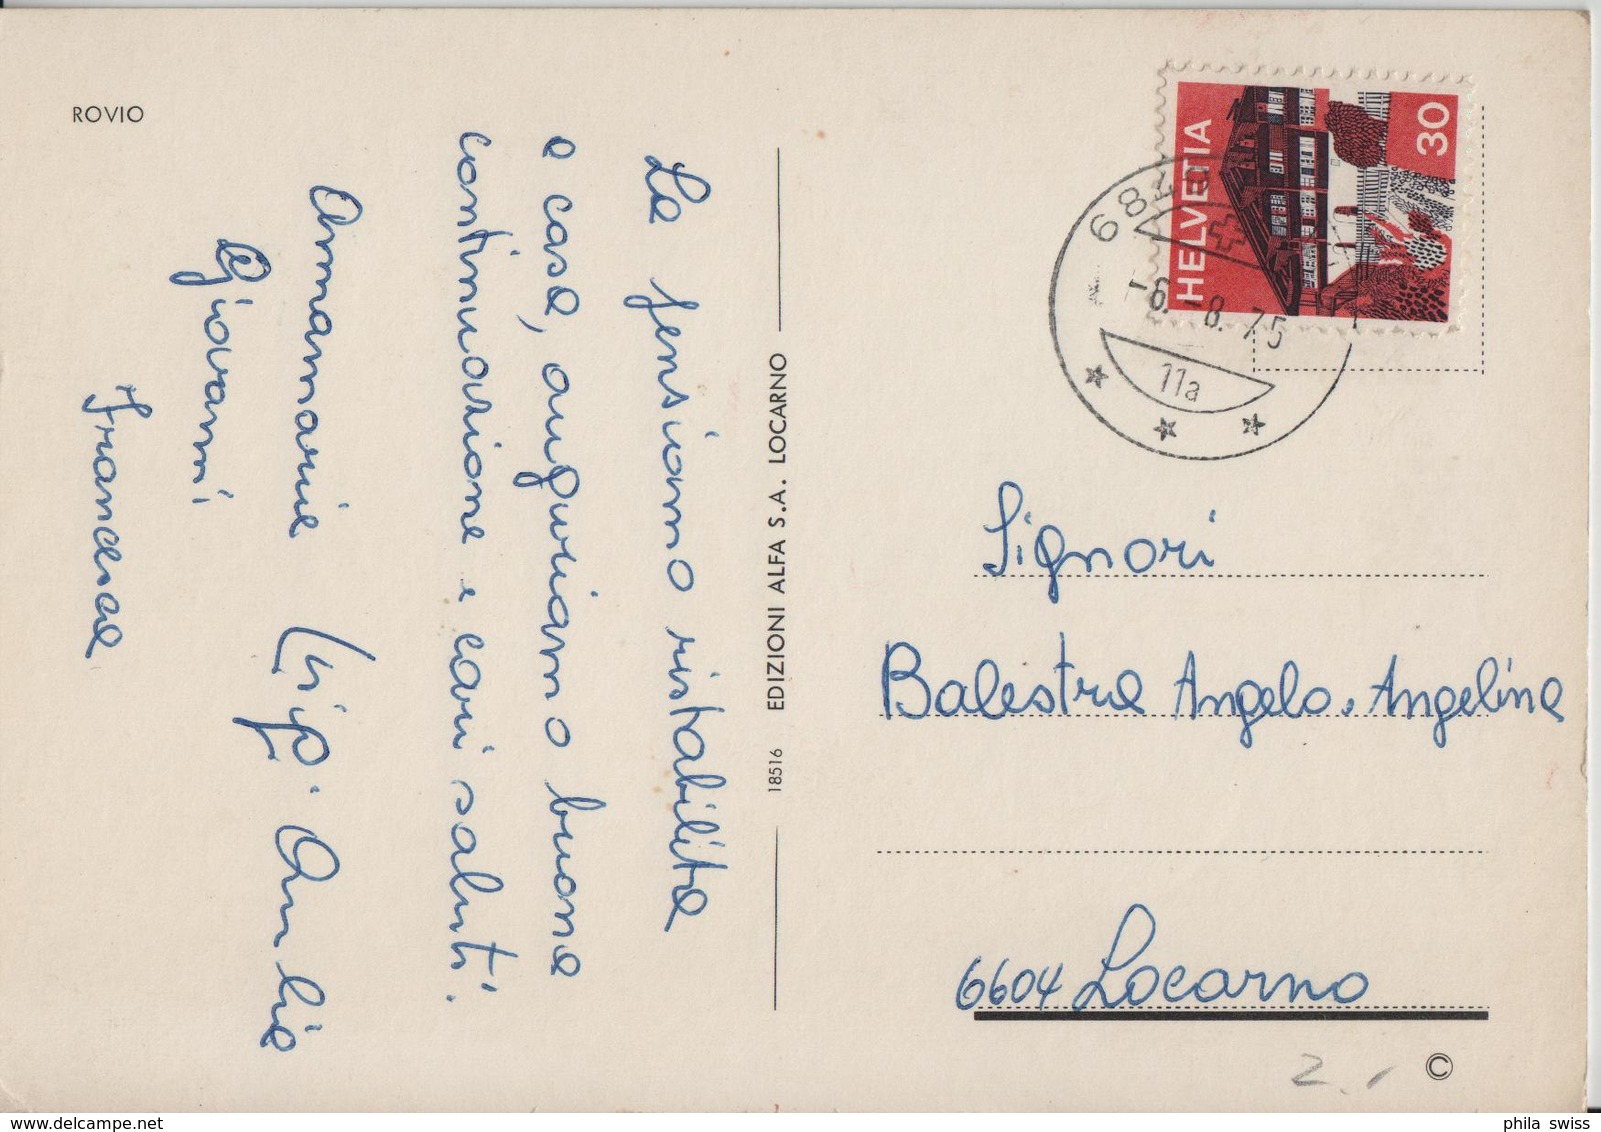 ROVIO
La pensiamo ristabilita
a casa, auguriamo buona
continuazione e cari saluti.
Annamaria Luigi Amelia
Giovanni
Francesca
18516 EDIZIONI ALFA S.A. LOCARNO
HELVETIA
30
-6.-8.75
11a
Signori
Balestra Angelo. Angelina
6604 Locarno
2.-
©
phila swiss